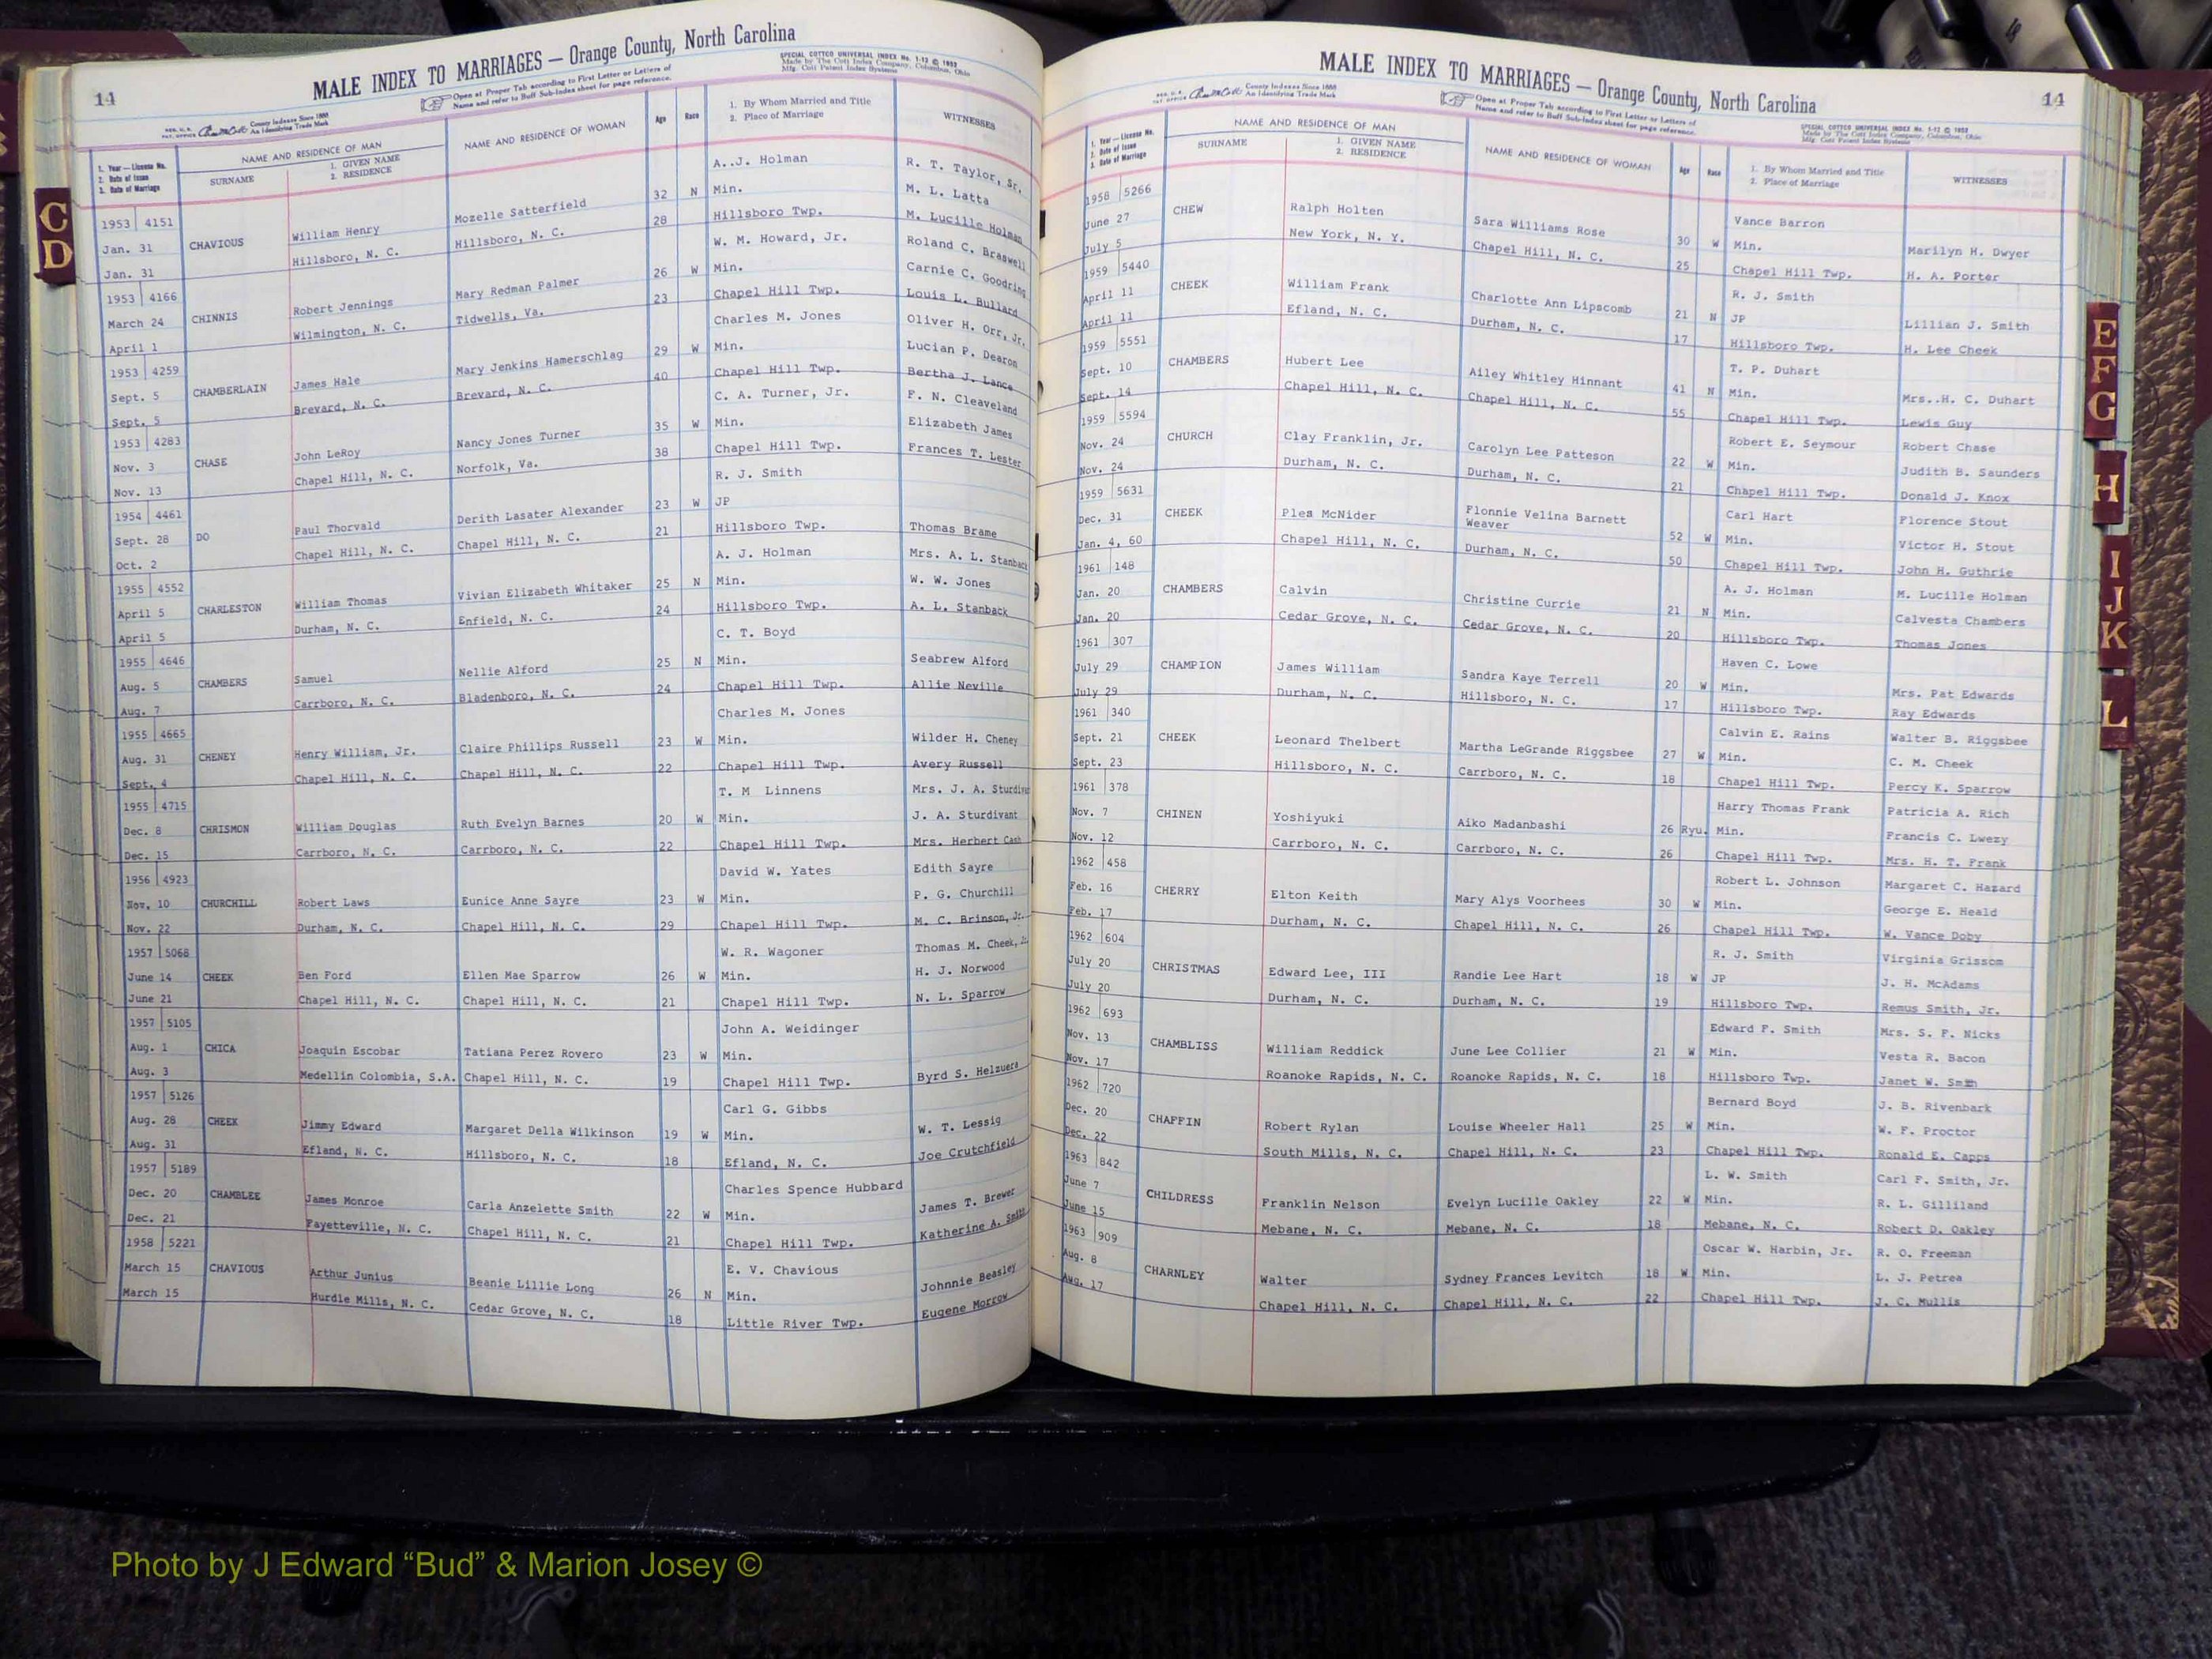 14
MALE INDEX TO MARRIAGES — Orange County, North Carolina
Open at Proper Tab according to First Letter or Letters of
Name and refer to Buff Sub-Index sheet for page reference.
SPECIAL COTTCO UNIVERSAL INDEX No. 1-12 © 1952
Made by The Cott Index Company, Columbus, Ohio
Mfg. Cott Patent Index Systems
County Indexes Since 1888
An Identifying Trade Mark
1. Year — License No.
2. Date of Issue
3. Date of Marriage
NAME AND RESIDENCE OF MAN
SURNAME
1. GIVEN NAME
2. RESIDENCE
NAME AND RESIDENCE OF WOMAN
Age
Race
1. By Whom Married and Title
2. Place of Marriage
WITNESSES
1953 4151 A..J. Holman R. T. Taylor, Sr.
Jan. 31 CHAVIOUS William Henry Mozelle Satterfield 32 N Min. M. L. Latta
Jan. 31 Hillsboro, N. C. Hillsboro, N. C. 28 Hillsboro Twp. M. Lucille Holman
1953 4166 W. M. Howard, Jr. Roland C. Braswell
March 24 CHINNIS Robert Jennings Mary Redman Palmer 26 W Min. Carnie C. Goodring
April 1 Wilmington, N. C. Tidwells, Va. 23 Chapel Hill Twp. Louis L. Bullard
1953 4259 Charles M. Jones Oliver H. Orr, Jr.
Sept. 5 CHAMBERLAIN James Hale Mary Jenkins Hamerschlag 29 W Min. Lucian P. Dearon
Sept. 5 Brevard, N. C. Brevard, N. C. 40 Chapel Hill Twp. Bertha J. Lance
1953 4283 C. A. Turner, Jr. F. N. Cleaveland
Nov. 3 CHASE John LeRoy Nancy Jones Turner 35 W Min. Elizabeth James
Nov. 13 Chapel Hill, N. C. Norfolk, Va. 38 Chapel Hill Twp. Frances T. Lester
1954 4461 R. J. Smith
Sept. 28 DO Paul Thorvald Derith Lasater Alexander 23 W JP
Oct. 2 Chapel Hill, N. C. Chapel Hill, N. C. 21 Hillsboro Twp. Thomas Brame
1955 4552 A. J. Holman Mrs. A. L. Stanback
April 5 CHARLESTON William Thomas Vivian Elizabeth Whitaker 25 N Min. W. W. Jones
April 5 Durham, N. C. Enfield, N. C. 24 Hillsboro Twp. A. L. Stanback
1955 4646 C. T. Boyd
Aug. 5 CHAMBERS Samuel Nellie Alford 25 N Min. Seabrew Alford
Aug. 7 Carrboro, N. C. Bladenboro, N. C. 24 Chapel Hill Twp. Allie Neville
1955 4665 Charles M. Jones
Aug. 31 CHENEY Henry William, Jr. Claire Phillips Russell 23 W Min. Wilder H. Cheney
Sept. 4 Chapel Hill, N. C. Chapel Hill, N. C. 22 Chapel Hill Twp. Avery Russell
1955 4715 T. M Linnens Mrs. J. A.
Dec. 8 CHRISMON William Douglas Ruth Evelyn Barnes 20 W Min. J. A. Sturdivant
Dec. 15 Carrboro, N. C. Carrboro, N. C. 22 Chapel Hill Twp. Mrs. Herbert Cash
1956 4923 David W. Yates Edith Sayre
Nov. 10 CHURCHILL Robert Laws Eunice Anne Sayre 23 W Min. P. G. Churchill
Nov. 22 Durham, N. C. Chapel Hill, N. C. 29 Chapel Hill Twp. M. C. Brinson, Jr.
1957 5068 W. R. Wagoner Thomas M. Cheek, Jr.
June 14 CHEEK Ben Ford Ellen Mae Sparrow 26 W Min. H. J. Norwood
June 21 Chapel Hill, N. C. Chapel Hill, N. C. 21 Chapel Hill Twp. N. L. Sparrow
1957 5105 John A. Weidinger
Aug. 1 CHICA Joaquin Escobar Tatiana Perez Rovero 23 W Min.
Aug. 3 Medellin Colombia, S.A. Chapel Hill, N. C. 19 Chapel Hill Twp. Byrd S. Helzuera
1957 5126 Carl G. Gibbs
Aug. 28 CHEEK Jimmy Edward Margaret Della Wilkinson 19 W Min. W. T. Lessig
Aug. 31 Efland, N. C. Hillsboro, N. C. 18 Efland, N. C. Joe Crutchfield
1957 5189 Charles Spence Hubbard
Dec. 20 CHAMBLEE James Monroe Carla Anzelette Smith 22 W Min. James T. Brewer
Dec. 21 Fayetteville, N. C. Chapel Hill, N. C. 21 Chapel Hill Twp. Katherine A. Smith
1958 5221 E. V. Chavious
March 15 CHAVIOUS Arthur Junius Beanie Lillie Long 26 N Min. Johnnie Beasley
March 15 Hurdle Mills, N. C. Cedar Grove, N. C. 18 Little River Twp. Eugene Morrow
14
MALE INDEX TO MARRIAGES — Orange County, North Carolina
County Indexes Since 1888
An Identifying Trade Mark
Open at Proper Tab according to First Letter or Letters of
Name and refer to Buff Sub-Index sheet for page reference.
SPECIAL COTTCO UNIVERSAL INDEX No. 1-12 © 1952
Made by The Cott Index Company, Columbus, Ohio
Mfg. Cott Patent Index Systems
1. Year — License No.
2. Date of Issue
3. Date of Marriage
NAME AND RESIDENCE OF MAN
SURNAME
1. GIVEN NAME
2. RESIDENCE
NAME AND RESIDENCE OF WOMAN
Age
Race
1. By Whom Married and Title
2. Place of Marriage
WITNESSES
1958 5266 Vance Barron
June 27 CHEW Ralph Holten Sara Williams Rose 30 W Min. Marilyn H. Dwyer
July 5 New York, N. Y. Chapel Hill, N. C. 25 Chapel Hill Twp. H. A. Porter
1959 5440 R. J. Smith
April 11 CHEEK William Frank Charlotte Ann Lipscomb 21 N JP Lillian J. Smith
April 11 Efland, N. C. Durham, N. C. 17 Hillsboro Twp. H. Lee Cheek
1959 5551 T. P. Duhart
Sept. 10 CHAMBERS Hubert Lee Ailey Whitley Hinnant 41 N Min. Mrs..H. C. Duhart
Sept. 14 Chapel Hill, N. C. Chapel Hill, N. C. 55 Chapel Hill Twp. Lewis Guy
1959 5594 Robert E. Seymour Robert Chase
Nov. 24 CHURCH Clay Franklin, Jr. Carolyn Lee Patteson 22 W Min. Judith B. Saunders
Nov. 24 Durham, N. C. Durham, N. C. 21 Chapel Hill Twp. Donald J. Knox
1959 5631 Carl Hart Florence Stout
Dec. 31 CHEEK Ples McNider Flonnie Velina Barnett Weaver 52 W Min. Victor H. Stout
Jan. 4, 60 Chapel Hill, N. C. Durham, N. C. 50 Chapel Hill Twp. John H. Guthrie
1961 148 A. J. Holman M. Lucille Holman
Jan. 20 CHAMBERS Calvin Christine Currie 21 N Min. Calvesta Chambers
Jan. 20 Cedar Grove, N. C. Cedar Grove, N. C. 20 Hillsboro Twp. Thomas Jones
1961 307 Haven C. Lowe
July 29 CHAMPION James William Sandra Kaye Terrell 20 W Min. Mrs. Pat Edwards
July 29 Durham, N. C. Hillsboro, N. C. 17 Hillsboro Twp. Ray Edwards
1961 340 Calvin E. Rains Walter B. Riggsbee
Sept. 21 CHEEK Leonard Thelbert Martha LeGrande Riggsbee 27 W Min. C. M. Cheek
Sept. 23 Hillsboro, N. C. Carrboro, N. C. 18 Chapel Hill Twp. Percy K. Sparrow
1961 378 Harry Thomas Frank Patricia A. Rich
Nov. 7 CHINEN Yoshiyuki Aiko Madanbashi 26 Ryu. Min. Francis C. Lwezy
Nov. 12 Carrboro, N. C. Carrboro, N. C. 26 Chapel Hill Twp. Mrs. H. T. Frank
1962 458 Robert L. Johnson Margaret C. Hazard
Feb. 16 CHERRY Elton Keith Mary Alys Voorhees 30 W Min. George E. Heald
Feb. 17 Durham, N. C. Chapel Hill, N. C. 26 Chapel Hill Twp. W. Vance Doby
1962 604 R. J. Smith Virginia Grissom
July 20 CHRISTMAS Edward Lee, III Randie Lee Hart 18 W JP J. H. McAdams
July 20 Durham, N. C. Durham, N. C. 19 Hillsboro Twp. Remus Smith, Jr.
1962 693 Edward F. Smith Mrs. S. F. Nicks
Nov. 13 CHAMBLISS William Reddick June Lee Collier 21 W Min. Vesta R. Bacon
Nov. 17 Roanoke Rapids, N. C. Roanoke Rapids, N. C. 18 Hillsboro Twp. Janet W. Smith
1962 720 Bernard Boyd J. B. Rivenbark
Dec. 20 CHAFFIN Robert Rylan Louise Wheeler Hall 25 W Min. W. F. Proctor
Dec. 22 South Mills, N. C. Chapel Hill, N. C. 23 Chapel Hill Twp. Ronald E. Capps
1963 842 L. W. Smith Carl F. Smith, Jr.
June 7 CHILDRESS Franklin Nelson Evelyn Lucille Oakley 22 W Min. R. L. Gilliland
June 15 Mebane, N. C. Mebane, N. C. 18 Mebane, N. C. Robert D. Oakley
1963 909 Oscar W. Harbin, Jr. R. O. Freeman
Aug. 8 CHARNLEY Walter Sydney Frances Levitch 18 W Min. L. J. Petrea
Aug. 17 Chapel Hill, N. C. Chapel Hill, N. C. 22 Chapel Hill Twp. J. C. Mullis
C
D
E
F
G
H
I
J
K
L
Photo by J Edward “Bud” & Marion Josey ©